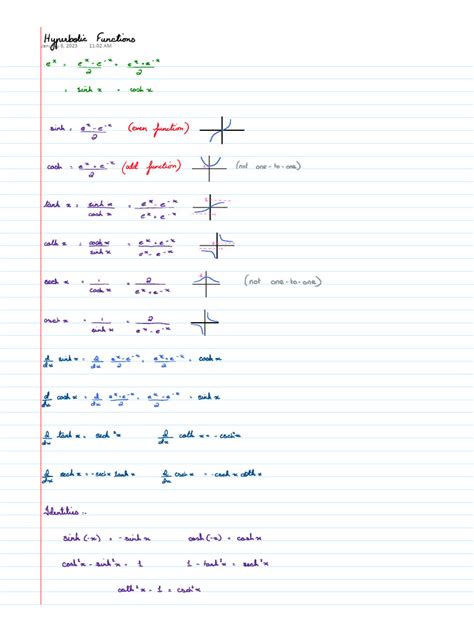 Hyperbolic Functions
6, 2023 11:02 AM
e^x = (e^x - e^-x)/2 + (e^x + e^-x)/2
= sinh x + cosh x
sinh = (e^x - e^-x)/2 (even function)
cosh = (e^x + e^-x)/2 (odd function) (not one-to-one)
tanh x = sinh x/cosh x = (e^x - e^-x)/(e^x + e^-x)
coth x = cosh x/sinh x = (e^x + e^-x)/(e^x - e^-x)
sech x = 1/cosh x = 2/(e^x + e^-x) (not one-to-one)
csch x = 1/sinh x = 2/(e^x - e^-x)
d/dx sinh x = d/dx (e^x - e^-x)/2 = (e^x + e^-x)/2 = cosh x
d/dx cosh x = d/dx (e^x + e^-x)/2 = (e^x - e^-x)/2 = sinh x
d/dx tanh x = sech²x d/dx coth x = -csch²x
d/dx sech x = -sech x tanh x d/dx csch x = -csch x coth x
Identities :-
sinh (-x) = -sinh x cosh (-x) = cosh x
cosh²x - sinh²x = 1 1 - tanh²x = sech²x
coth²x - 1 = csch²x